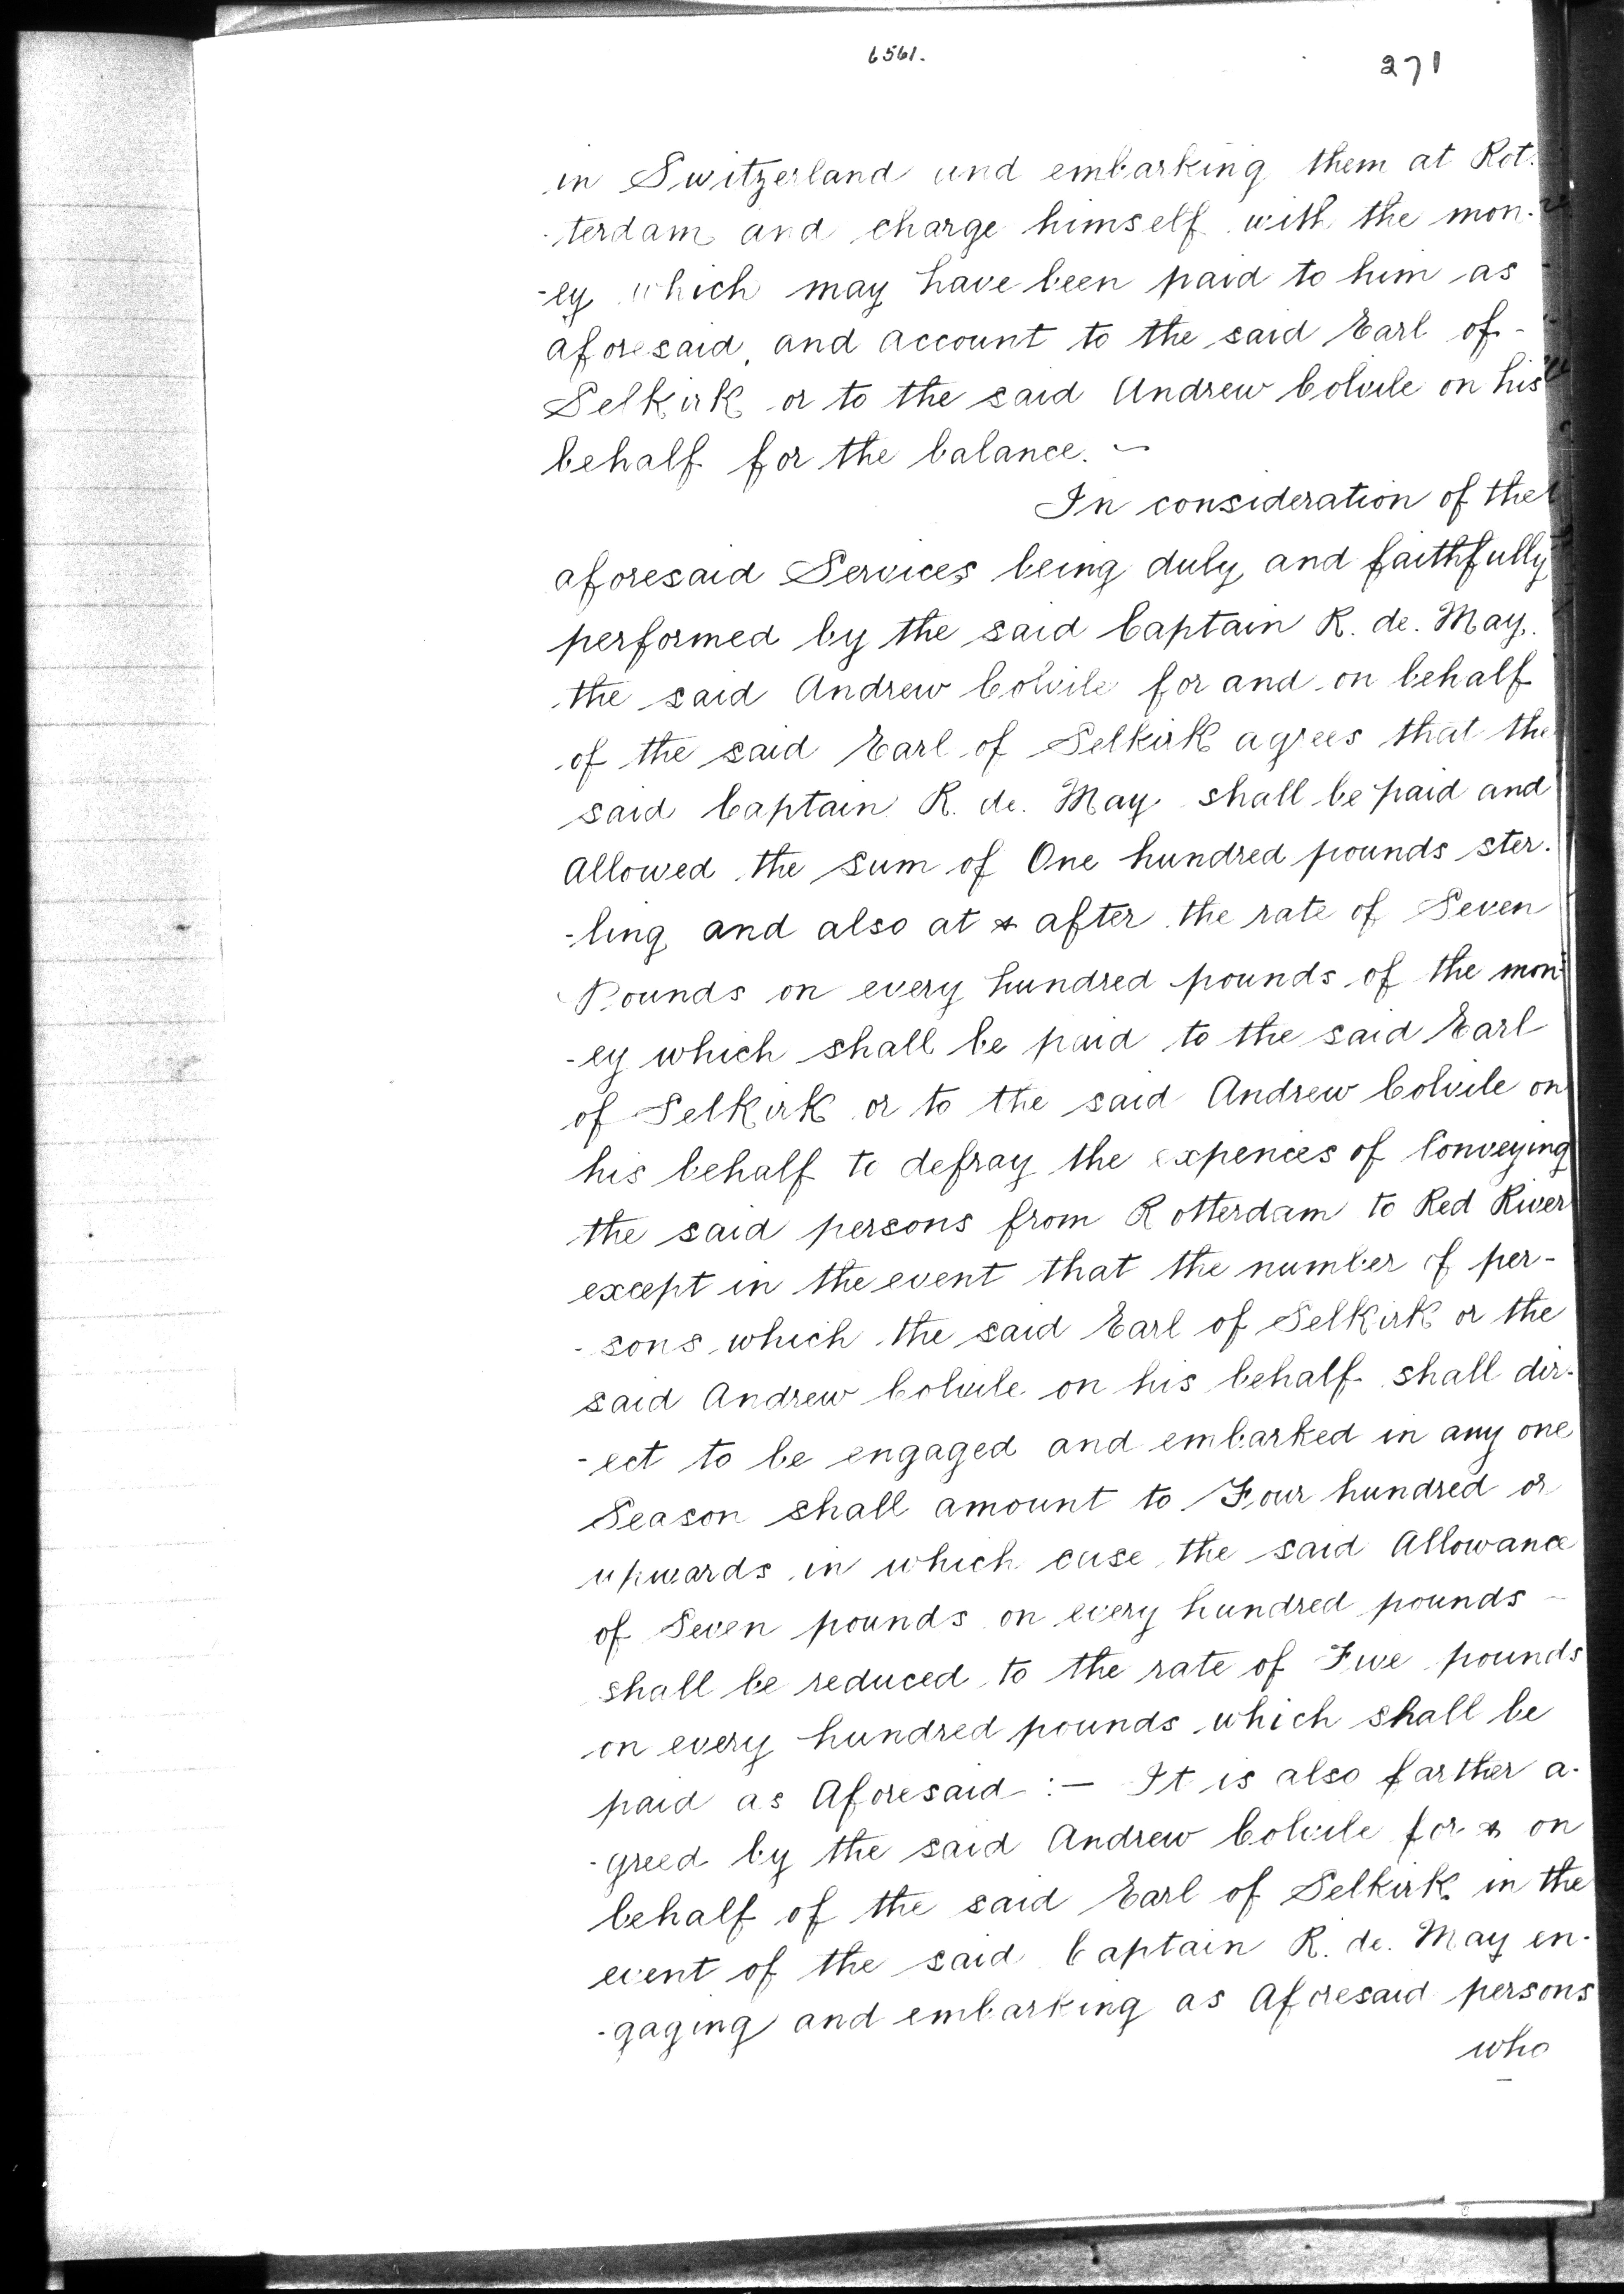 6561.
271
in Switzerland and embarking them at Rot-
-terdam and charge himself with the mon-
-ey which may have been paid to him as
aforesaid, and account to the said Earl of -
Selkirk or to the said Andrew Colvile on his
behalf for the balance. -
In consideration of the
aforesaid Services being duly and faithfully
performed by the said Captain R. de. May.
the said Andrew Colvile for and on behalf
of the said Earl of Selkirk agrees that the
said Captain R. de. May shall be paid and
Allowed the sum of One hundred pounds ster-
-ling and also at & after the rate of Seven
Pounds on every hundred pounds of the mon-
-ey which shall be paid to the said Earl
of Selkirk or to the said Andrew Colvile on
his behalf to defray the expences of Conveying
the said persons from Rotterdam to Red River
except in the event that the number of per-
-sons which the said Earl of Selkirk or the
said Andrew Colvile on his behalf shall dir-
-ect to be engaged and embarked in any one
Season shall amount to Four hundred or
upwards in which case the said Allowance
of Seven pounds on every hundred pounds -
shall be reduced to the rate of Five pounds
on every hundred pounds which shall be
paid as Aforesaid :- It is also farther a-
-greed by the said Andrew Colvile for & on
behalf of the said Earl of Selkirk in the
event of the said Captain R. de. May en-
-gaging and embarking as Aforesaid persons
who